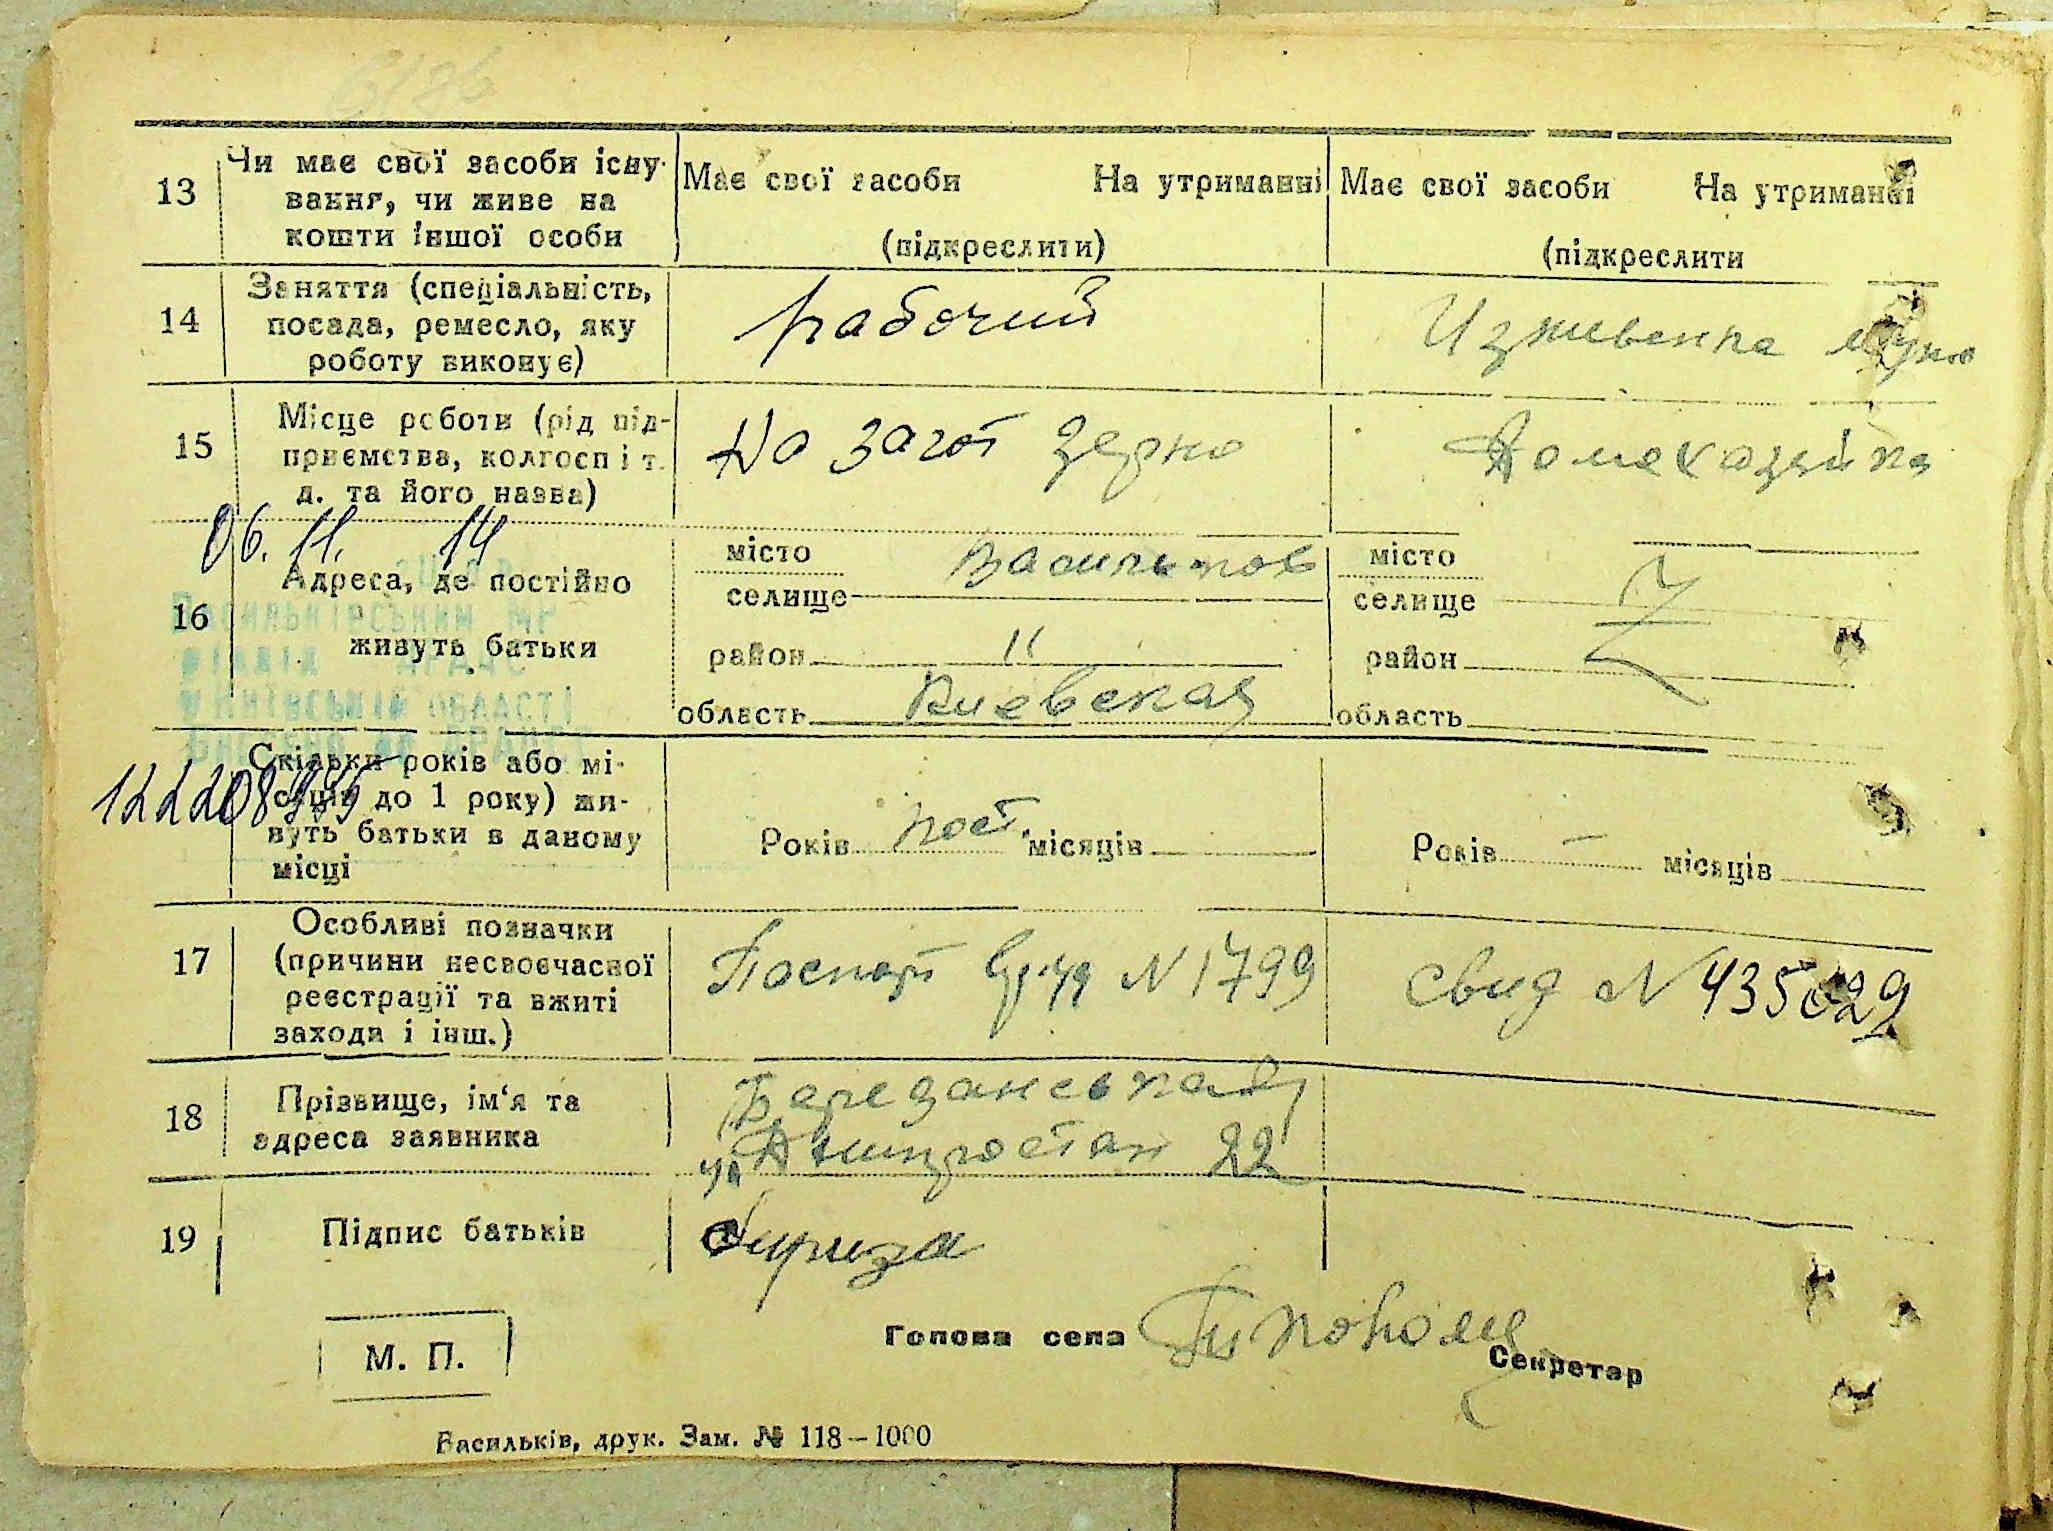 13 Чи має свої засоби існу-
вання, чи живе на
кошти іншої особи
Має свої засоби На утриманні
(підкреслити)
Має свої засоби На утриманні
(підкреслити
14 Заняття (спеціальність,
посада, ремесло, яку
роботу виконує)
рабочий
Иждивенка
15 Місце роботи (рід під-
приємства, колгосп і т.
д. та його назва)
На загот зерно
Домохозяйка
06. 11. 14
16 Адреса, де постійно
живуть батьки
місто Васильков
селище
район "
область Киевская
місто
селище
район
область
Васильківським МР
відділ ДРАЦС
Київській області
Скільки років або мі-
сяців до 1 року) жи-
вуть батьки в даному
місці
Років пост. місяців
Років – місяців
17 Особливі позначки
(причини несвоєчасної
реєстрації та вжиті
заходи і інш.)
Паспорт N 1799
Свид N 435029
18 Прізвище, ім‘я та
адреса заявника
Березанська
ул 22
19 Підпис батьків
М. П.
Голова села
Секретар
Васильків, друк. Зам. № 118–1000